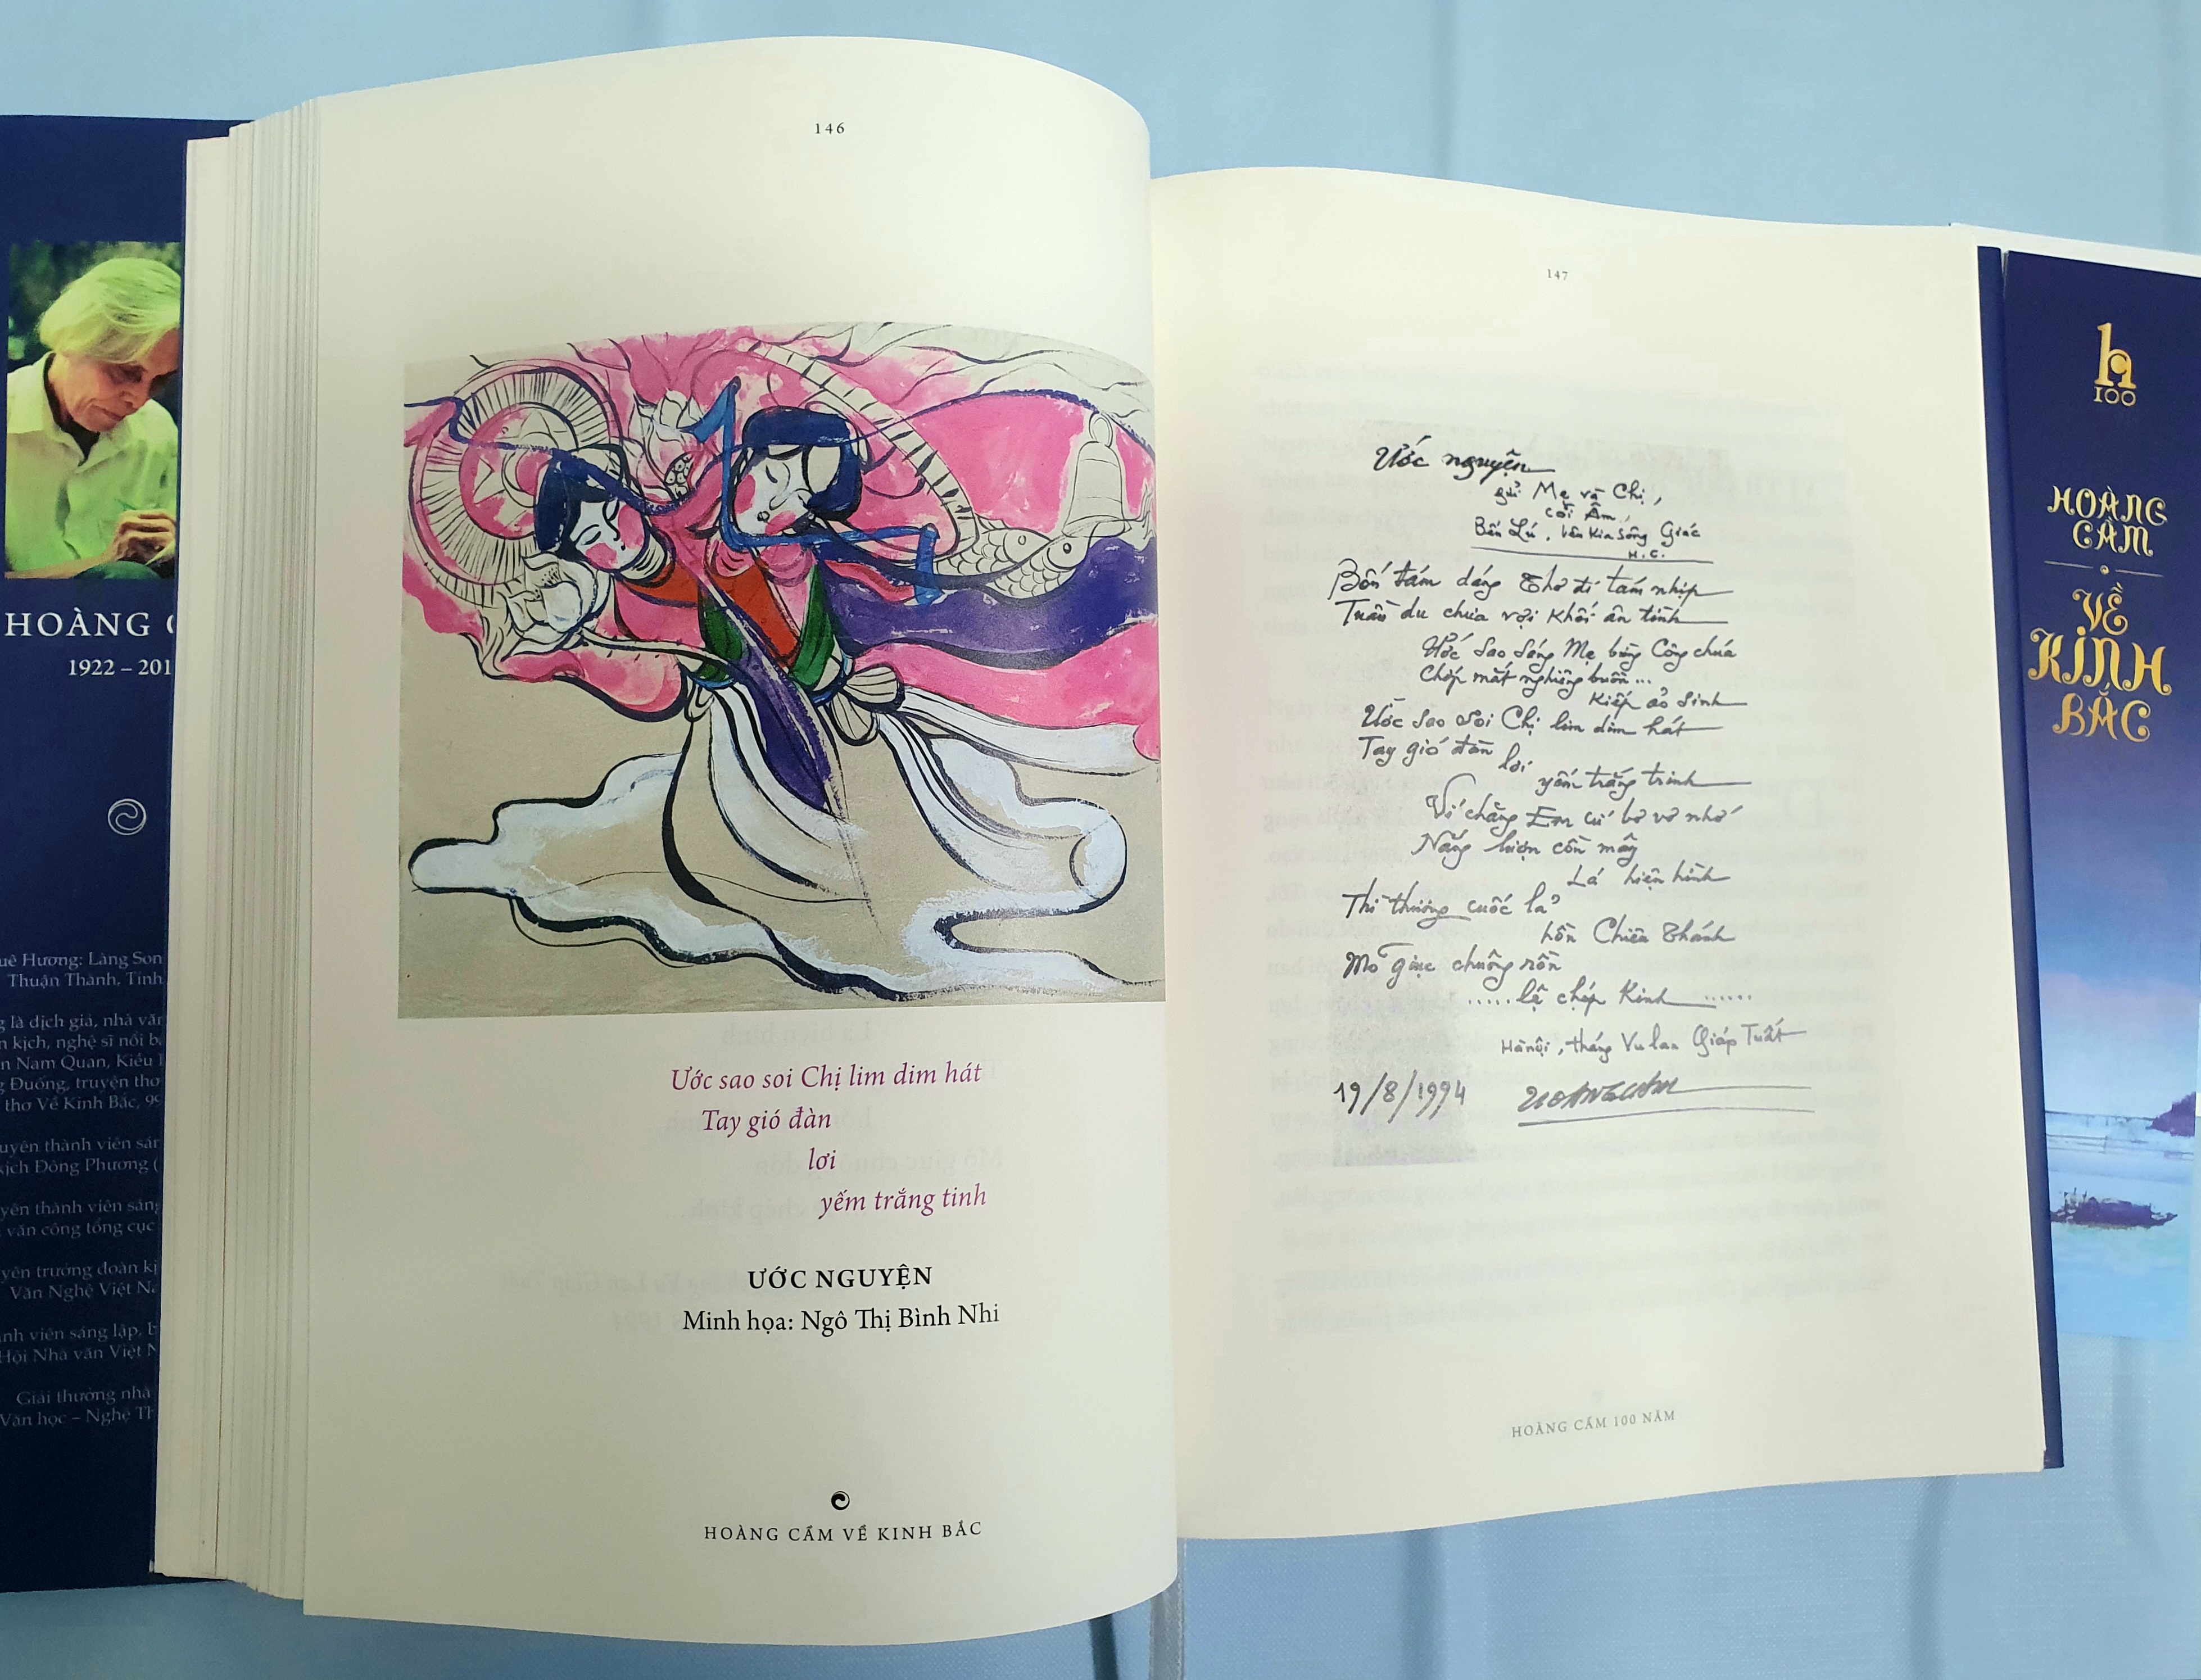 HOÀNG
1922 – 201
uê Hương: Làng Son
Thuận Thành, Tỉnh
g là dịch giả, nhà văn
n kịch, nghệ sĩ nổi
n Nam Quan, Kiều
g Đuống, truyện thơ
thơ Về Kinh Bắc, 99
uyên thành viên sán
kịch Đông Phương (
yên thành viên sáng
văn công tổng cục
yên trưởng đoàn kị
Văn Nghệ Việt Na
nh viên sáng lập, b
Hội Nhà văn Việt N
Giải thưởng nhà
Văn học – Nghệ Th
146
Ước sao soi Chị lim dim hát
Tay gió đàn
lơi
yếm trắng tinh
ƯỚC NGUYỆN
Minh họa: Ngô Thị Bình Nhi
HOÀNG CẦM VỀ KINH BẮC
147
Ước nguyện
gửi Mẹ và Chị,
cõi Âm,
Bến Lú, bên kia sông Giác
H.C.
Bốn tám dáng Thơ đi tám nhịp
Tuần du chưa vợi khối ân tình
Ước sao sáng Mẹ bừng Công chúa
Chớp mắt nghiêng buồn...
Kiếp ảo sinh
Ước sao soi Chị lim dim hát
Tay gió đàn
lơi
yếm trắng trinh
Ví chăng Em cứ bơ vơ nhớ
Nắng lượn cồn mây
Lá hiện hình
Thì thương cuốc lả
hồn Chiêu Thánh
Mõ giục chuông rền
.....lệ chép Kinh......
Hà nội, tháng Vu lan Giáp Tuất
19/8/1994 HOANGCAM
HOÀNG CẦM 100 NĂM
100
HOÀNG
CẦM
VỀ
KINH
BẮC